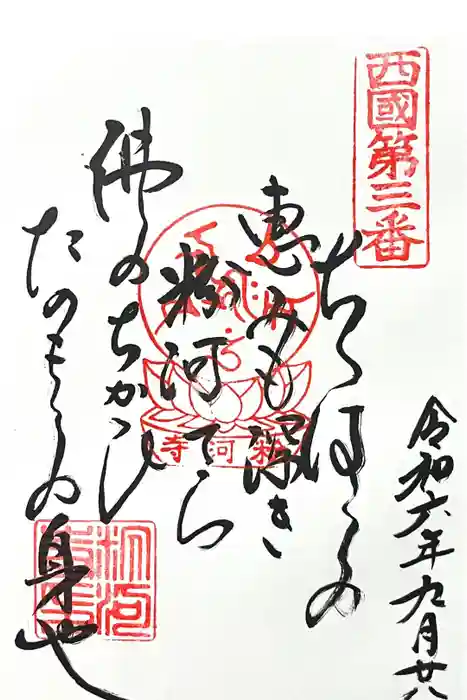 西國第三番
令和六年九月廿八
ちゝはゝの
恵みも深き
粉河てら
佛のちかひ
たのもしの身也
粉河寺